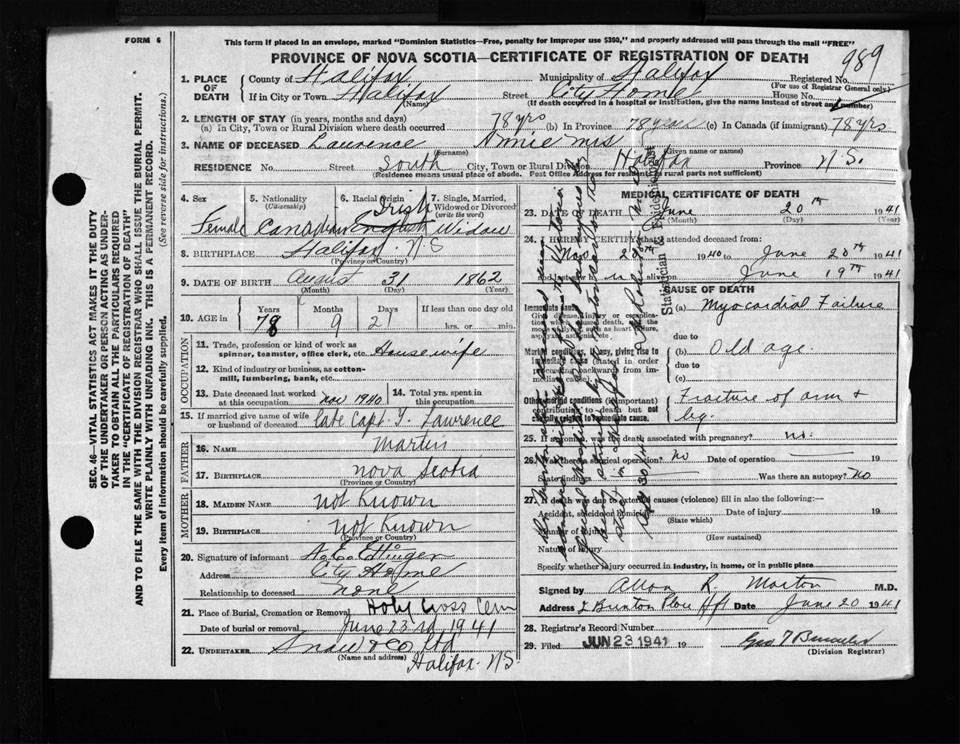 FORM 6
This form if placed in an envelope, marked "Dominion Statistics—Free, penalty for improper use $300," and properly addressed will pass through the mail "FREE"
PROVINCE OF NOVA SCOTIA—CERTIFICATE OF REGISTRATION OF DEATH
989
1. PLACE OF DEATH
County of Halifax Municipality of Halifax Registered No.
(For use of Registrar General only.)
If in City or Town Halifax Street City Home House No.
(Name) (If death occurred in a hospital or institution, give the name instead of street and number)
2. LENGTH OF STAY (in years, months and days)
(a) In City, Town or Rural Division where death occurred 78 yrs (b) In Province 78 years (c) In Canada (if immigrant) 78 yrs
3. NAME OF DECEASED Lawrence Annie Mrs
(Surname) (Given name or names)
RESIDENCE No. Street South City, Town or Rural Division Halifax Province N.S.
(Residence means usual place of abode. Post Office Address for residents in rural parts not sufficient)
4. Sex Female
5. Nationality (Citizenship) Canadian
6. Racial Origin Irish English
7. Single, Married, Widowed or Divorced (write the word) Widow
8. BIRTHPLACE Halifax N S
(Province or Country)
9. DATE OF BIRTH August 31 1862
(Month) (Day) (Year)
10. AGE Years 78 Months 9 Days 21 If less than one day old
hrs. or min.
OCCUPATION
11. Trade, profession or kind of work as spinner, teamster, office clerk, etc. Housewife
12. Kind of industry or business, as cotton-mill, lumbering, bank, etc.
13. Date deceased last worked at this occupation Nov 1940
14. Total yrs. spent in this occupation.
15. If married give name of wife or husband of deceased late Capt. Lawrence
FATHER
16. NAME Martin
17. BIRTHPLACE Nova Scotia
(Province or Country)
MOTHER
18. MAIDEN NAME Not Known
19. BIRTHPLACE not Known
(Province or Country)
20. Signature of informant A. E. Ettinger
Address City Home
Relationship to deceased none
21. Place of Burial, Cremation or Removal Holy Cross Cem
Date of burial or removal June 23rd 1941
22. UNDERTAKER Snow & Co Ltd
(Name and address) Halifax N S
MEDICAL CERTIFICATE OF DEATH
23. DATE OF DEATH June 20th 1941
(Month) (Day) (Year)
24. I HEREBY CERTIFY that I attended deceased from:
Nov. 20th 1940 to June 20th 1941
and last saw h alive on June 19th 1941
CAUSE OF DEATH
Immediate cause
Give disease, injury or complication which caused death, not the mode of dying such as heart failure, asphyxia, asthenia, etc.
(a) Myocardial Failure
due to
Morbid conditions, if any, giving rise to immediate cause (stated in order proceeding backwards from immediate cause).
(b) Old age
due to
(c)
Other morbid conditions (if important) contributing to death but not causally related to immediate cause.
Fracture of arm & leg.
25. If a woman, was the death associated with pregnancy? no.
26. Was there a surgical operation? No Date of operation 19
State findings Was there an autopsy? No
27. If death was due to external causes (violence) fill in also the following:—
Accident, suicide or homicide Date of injury 19
(State which)
Manner of injury
(How sustained)
Nature of injury
Specify whether injury occurred in industry, in home, or in public place
Signed by Allan R. Morton M.D.
Address 2 Brunton Place Hfx Date June 20 1941
28. Registrar's Record Number
29. Filed JUN 23 1941 19
(Division Registrar)
SEC. 46—VITAL STATISTICS ACT MAKES IT THE DUTY OF THE UNDERTAKER OR PERSON ACTING AS UNDERTAKER TO OBTAIN ALL THE PARTICULARS REQUIRED IN THE "CERTIFICATE OF REGISTRATION OF DEATH" AND TO FILE THE SAME WITH THE DIVISION REGISTRAR WHO SHALL ISSUE THE BURIAL PERMIT.
WRITE PLAINLY WITH UNFADING INK. THIS IS A PERMANENT RECORD.
Every item of information should be carefully supplied. (See reverse side for instructions.)